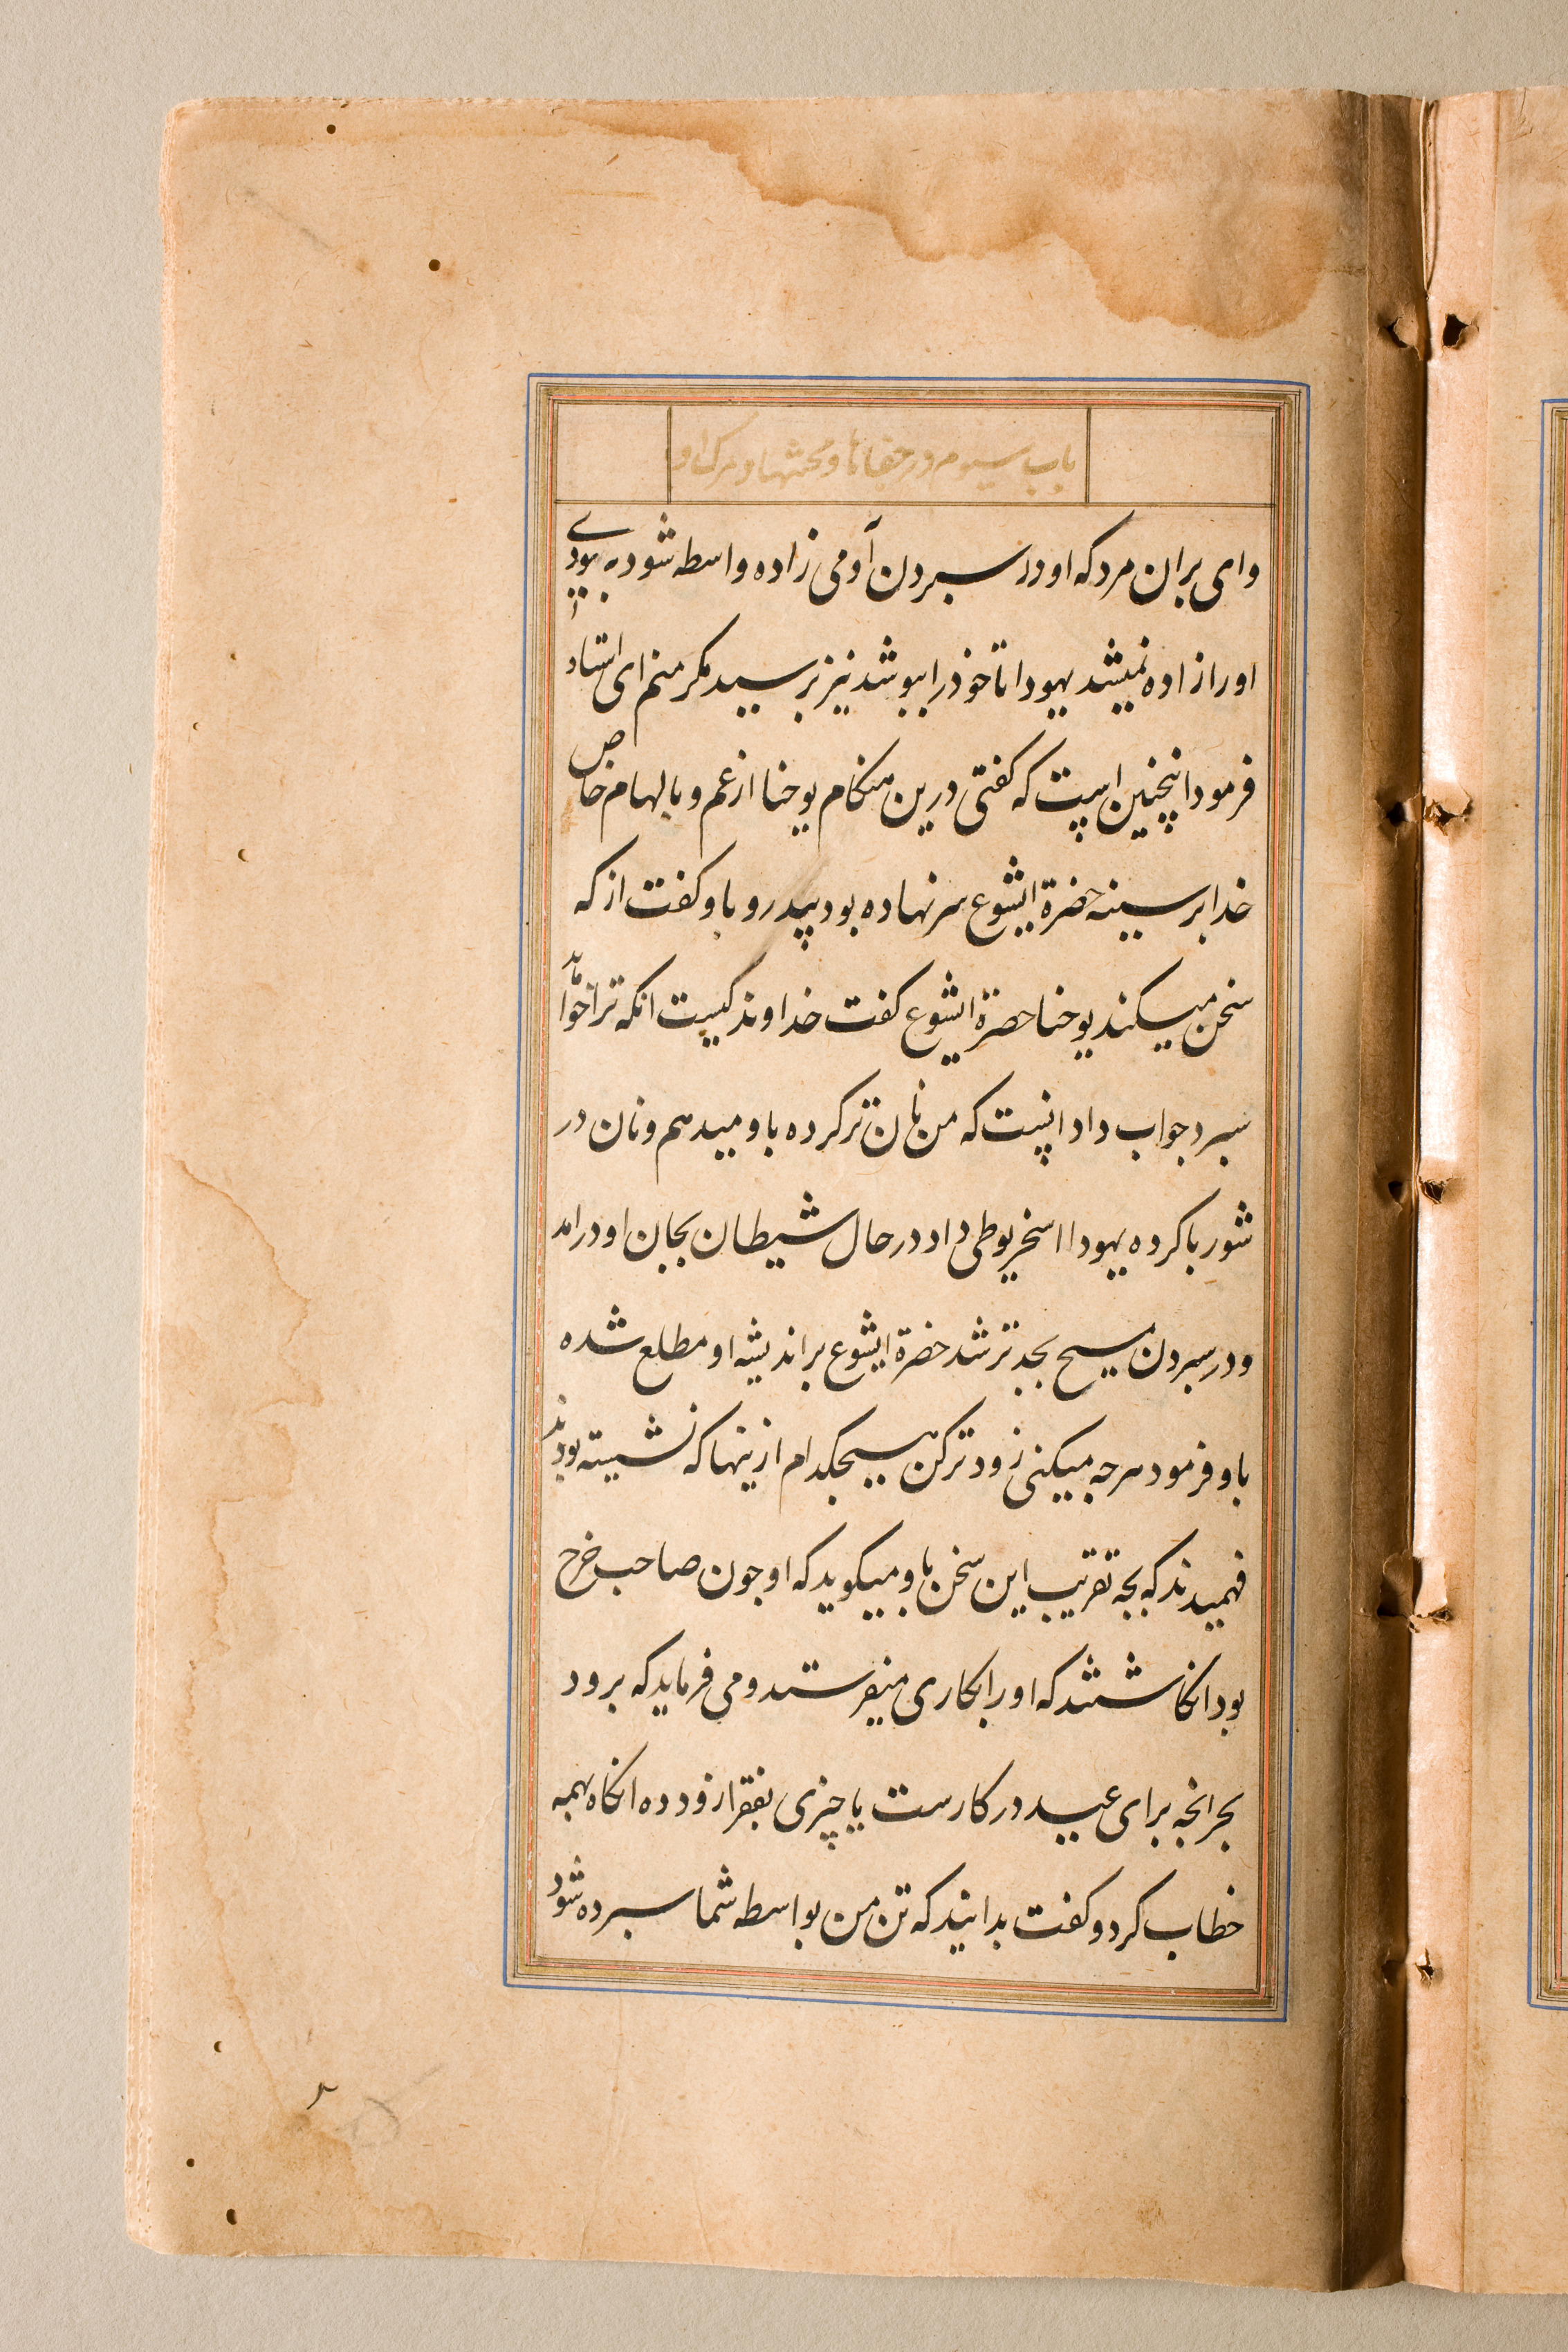 باب سیوم در جفاها و محنتها و مرک او
وای بران مرد که او در سبردن آدمی زاده واسطه شود به بودی
اورا زاده نمیشد یهودا تا خود را ببوشد نیز برسید مکر منم ای استاد
فرمود انچنین است که کفتی درین هنکام یوحنا از غم و بالهام خاص
خدا بر سینه حضرة ایشوع سر نهاده بود پیدرو باو کفت از که
سخن میکند یوحنا حضرة ایشوع کفت خداوند کیست انکه ترا خواهد
سبرد جواب داد انست که من نان تر کرده باو میدهم و نان در
شوربا کرده یهودا اسخریوطی داد در حال شیطان بجان او درامد
و در سبردن مسیح بجد تر شد حضرة ایشوع بر اندیشه او مطلع شده
باو فرمود هرجه میکنی زود تر کن هیجکدام ازینها که نشسته بودند
فهمیدند که بجه تقریب این سخن باو میکوید که او جون صاحب خرج
بود انکاشتند که اورا بکاری میفرستد و می فرماید که برود
بخر انجه برای عید در کارست یا چیزی بفقرا زود ده انکاه بهمه
خطاب کرد و کفت بدانید که تن من بواسطه شما سبرده شود